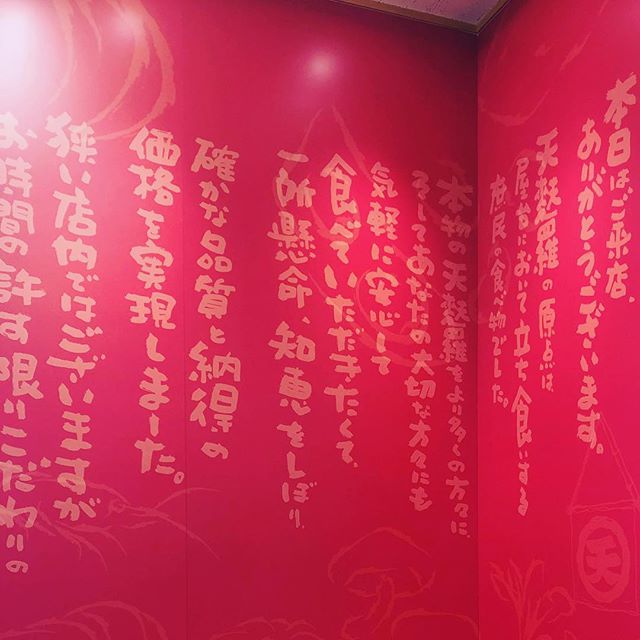 本日はご来店、
ありがとうございます。
天麩羅の原点は
屋台において立ち食いする
庶民の食べ物でした。
本物の天麩羅をより多くの方々に、
そしてあなたの大切な方々にも
気軽に安心して
食べていただきたくて、
一所懸命、知恵をしぼり、
確かな品質と納得の
価格を実現しました。
狭い店内ではございますが
お時間の許す限りこだわりの
天